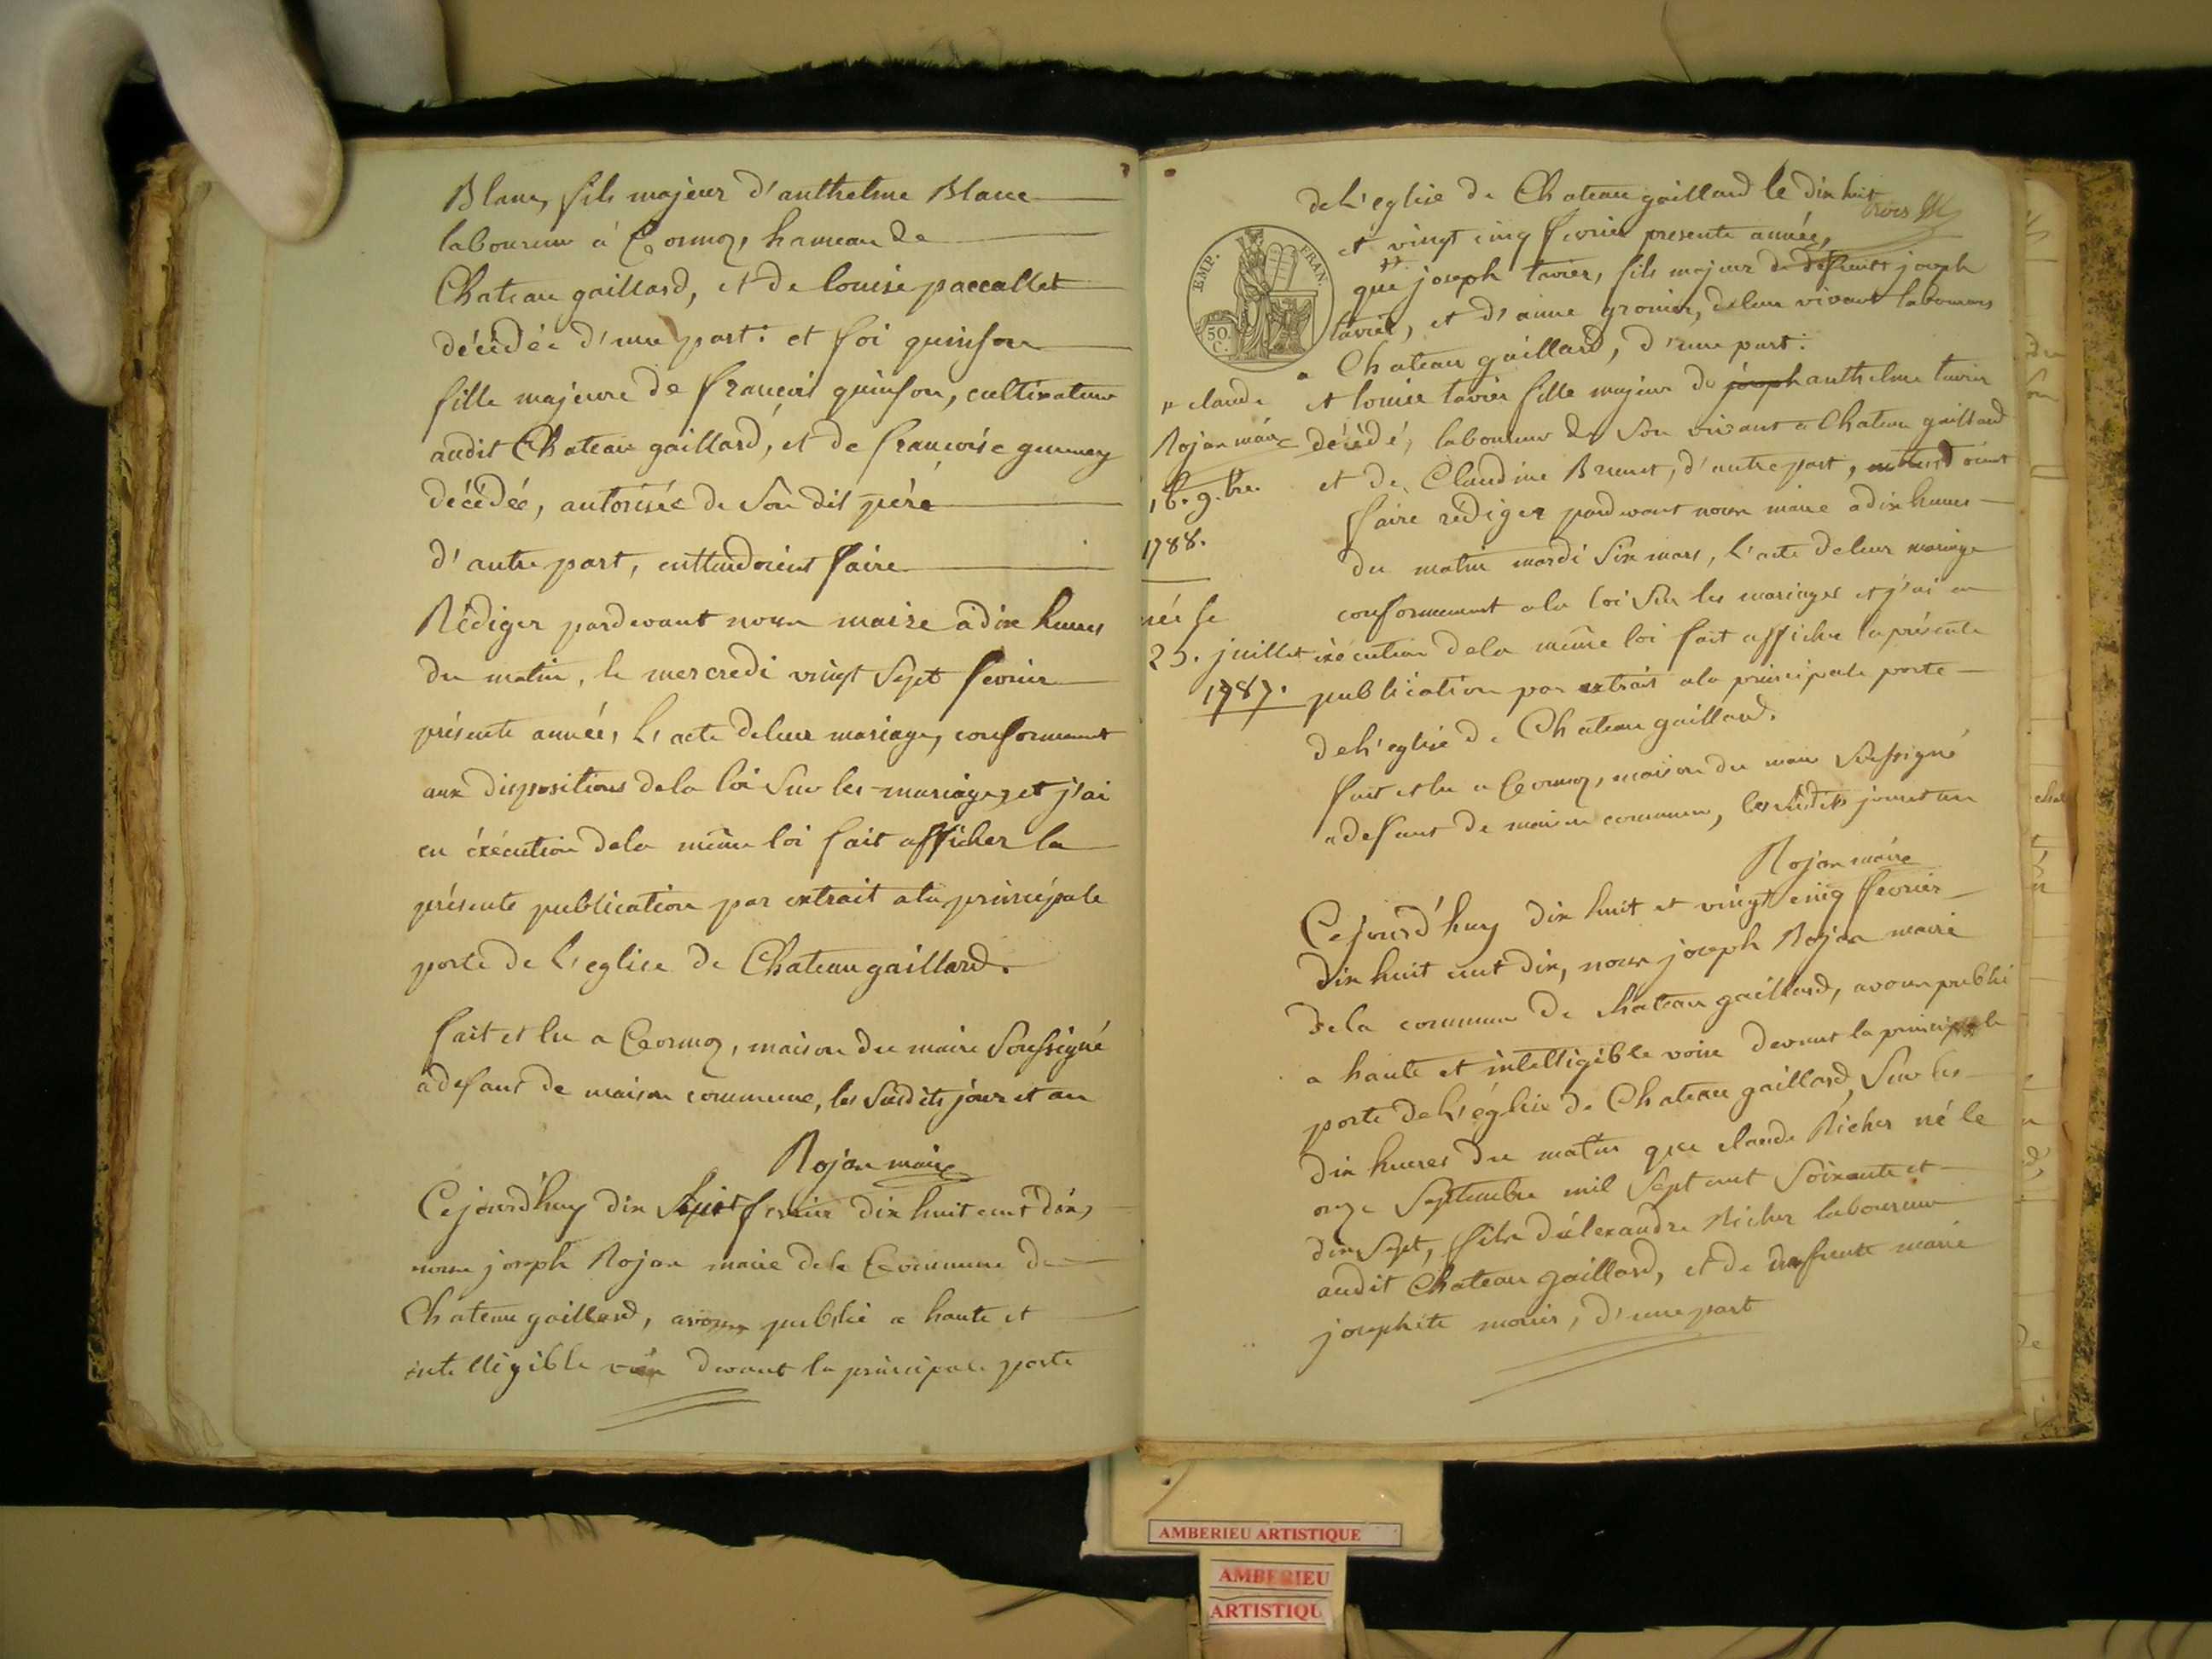 Blanc, fils majeur d'anthelme Blanc
laboureur à Cormoz, hameau de
Chateau gaillard, et de louise paccallet
décédée d'une part: et foi quinson
fille majeure de françois quinson, cultivateur
audit Chateau gaillard, et de francoise
décédée, autorisée de son dit père
d'autre part, enttendoient faire
Rédiger pardevant nous maire à dix heures
du matin, le mercredi vingt sept fevrier
présente année, l'acte deleur mariage, conformement
aux dispositions dela loi sur les mariages, et j'ai
en éxécution dela même loi fait afficher la
présente publication par extrait ala principale
porte de l'eglise de Chateau gaillard.
fait et lu a Cormoz, maison du maire soussigné
a defaut de maison commune, les susdits jour et an
Rojon maire
Cejourd'huy dix fevrier dix huit cent dix,
nous joseph Rojon maire dela Commune de
Chateau gaillard, avons publié a haute et
intelligible voix devant la principale porte
del'eglise de Chateau gaillard le dix huit
trois
et vingt cinq fevrier presente année,
EMP. FRAN.
50 C.
que joseph tavier, fils majeur de defunts joseph
tavier, et d'anne gronier, deleur vivant laboureurs
a Chateau gaillard, d'une part:
et louise tavier fille majeur de joseph anthelme tavier
décédé, laboureur de son vivant a Chateau gaillard
et de Claudine Brunet, d'autre part, entendoient
faire rédiger pardevant nous maire a dix heures
du matin mardi six mars, l'acte deleur mariage
conformement ala loi sur les mariages et j'ai en
éxécution dela même loi fait afficher la présente
publication par extrait ala principale porte
del'eglise de Chateau gaillard.
fait et lu a Cormoz, maison du maire soussigné
a defaut de maison commune, les susdits jour et an
Rojon maire
claude
Rojon maire
16. 9.bre.
1788.
née le
25. juillet
1787.
Cejourd'huy dix huit et vingt cinq fevrier
dix huit cent dix, nous joseph Rojon maire
dela commune de chateau gaillard, avons publié
a haute et intelligible voix devant la principale
porte del'église de Chateau gaillard, sur les
dix heures du matin que claude Richer né le
onze septembre mil sept cent soixante et
dix sept, fils d'alexandre Richer laboureur
audit Chateau gaillard, et de defunte marie
josephte d'une part
AMBERIEU ARTISTIQUE
AMBERIEU
ARTISTIQU